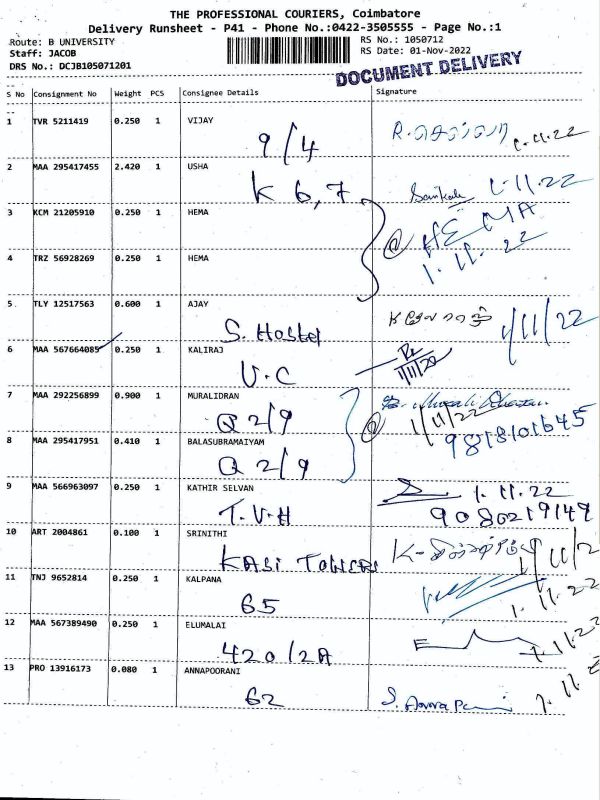 THE PROFESSIONAL COURIERS, Coimbatore
Delivery Runsheet - P41 - Phone No.:0422-3505555 - Page No.:1
Route: B UNIVERSITY RS No.: 1050712
Staff: JACOB RS Date: 01-Nov-2022
DRS No.: DCJB105071201 DOCUMENT DELIVERY
S No Consignment No Weight PCS Consignee Details Signature
1 TVR 5211419 0.250 1 VIJAY
9/4 1.11.22
2 MAA 295417455 2.420 1 USHA
K 6,7 1.11.22
3 KCM 21205910 0.250 1 HEMA
@ HEMA
4 TRZ 56928269 0.250 1 HEMA
1.11.22
5 TLY 12517563 0.600 1 AJAY
S. Hostel 1/11/22
6 MAA 567664085 0.250 1 KALIRAJ
U.C 1/11/22
7 MAA 292256899 0.900 1 MURALIDRAN
Q 2/9 @ 1/11/22
8 MAA 295417951 0.410 1 BALASUBRAMAIYAM
Q 2/9 9818101645
9 MAA 566963097 0.250 1 KATHIR SELVAN
1.11.22
T.V.H 9080219149
10 ART 2004861 0.100 1 SRINITHI
KASI TOWERS
11 TNJ 9652814 0.250 1 KALPANA
65 1.11.22
12 MAA 567389490 0.250 1 ELUMALAI
420/2A 1.11.22
13 PRO 13916173 0.080 1 ANNAPOORANI
62